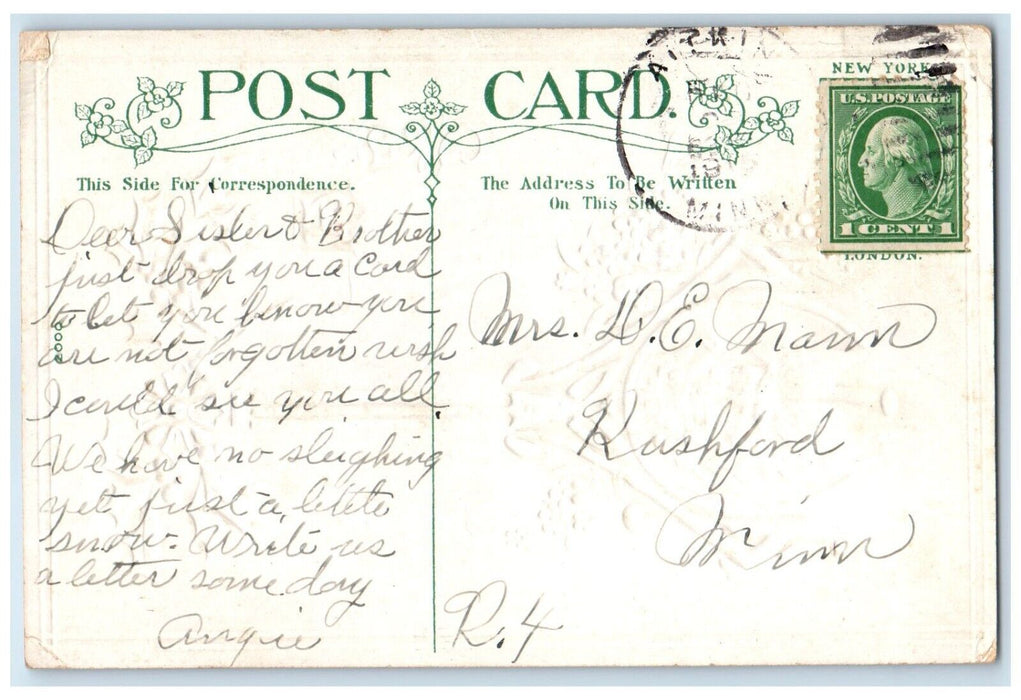 POST CARD.
This Side For Correspondence.
The Address To Be Written
On This Side.
NEW YORK
U.S. POSTAGE
1 CENT 1
LONDON.
AITKIN
MINN
2000
Dear Sister & Brother
just drop you a card
to let you know you
are not forgotten wish
I could see you all.
We have no sleighing
yet just a little
snow. Write us
a letter some day
Angie
Mrs. D. E. Mann
Rushford
Minn
R. 4